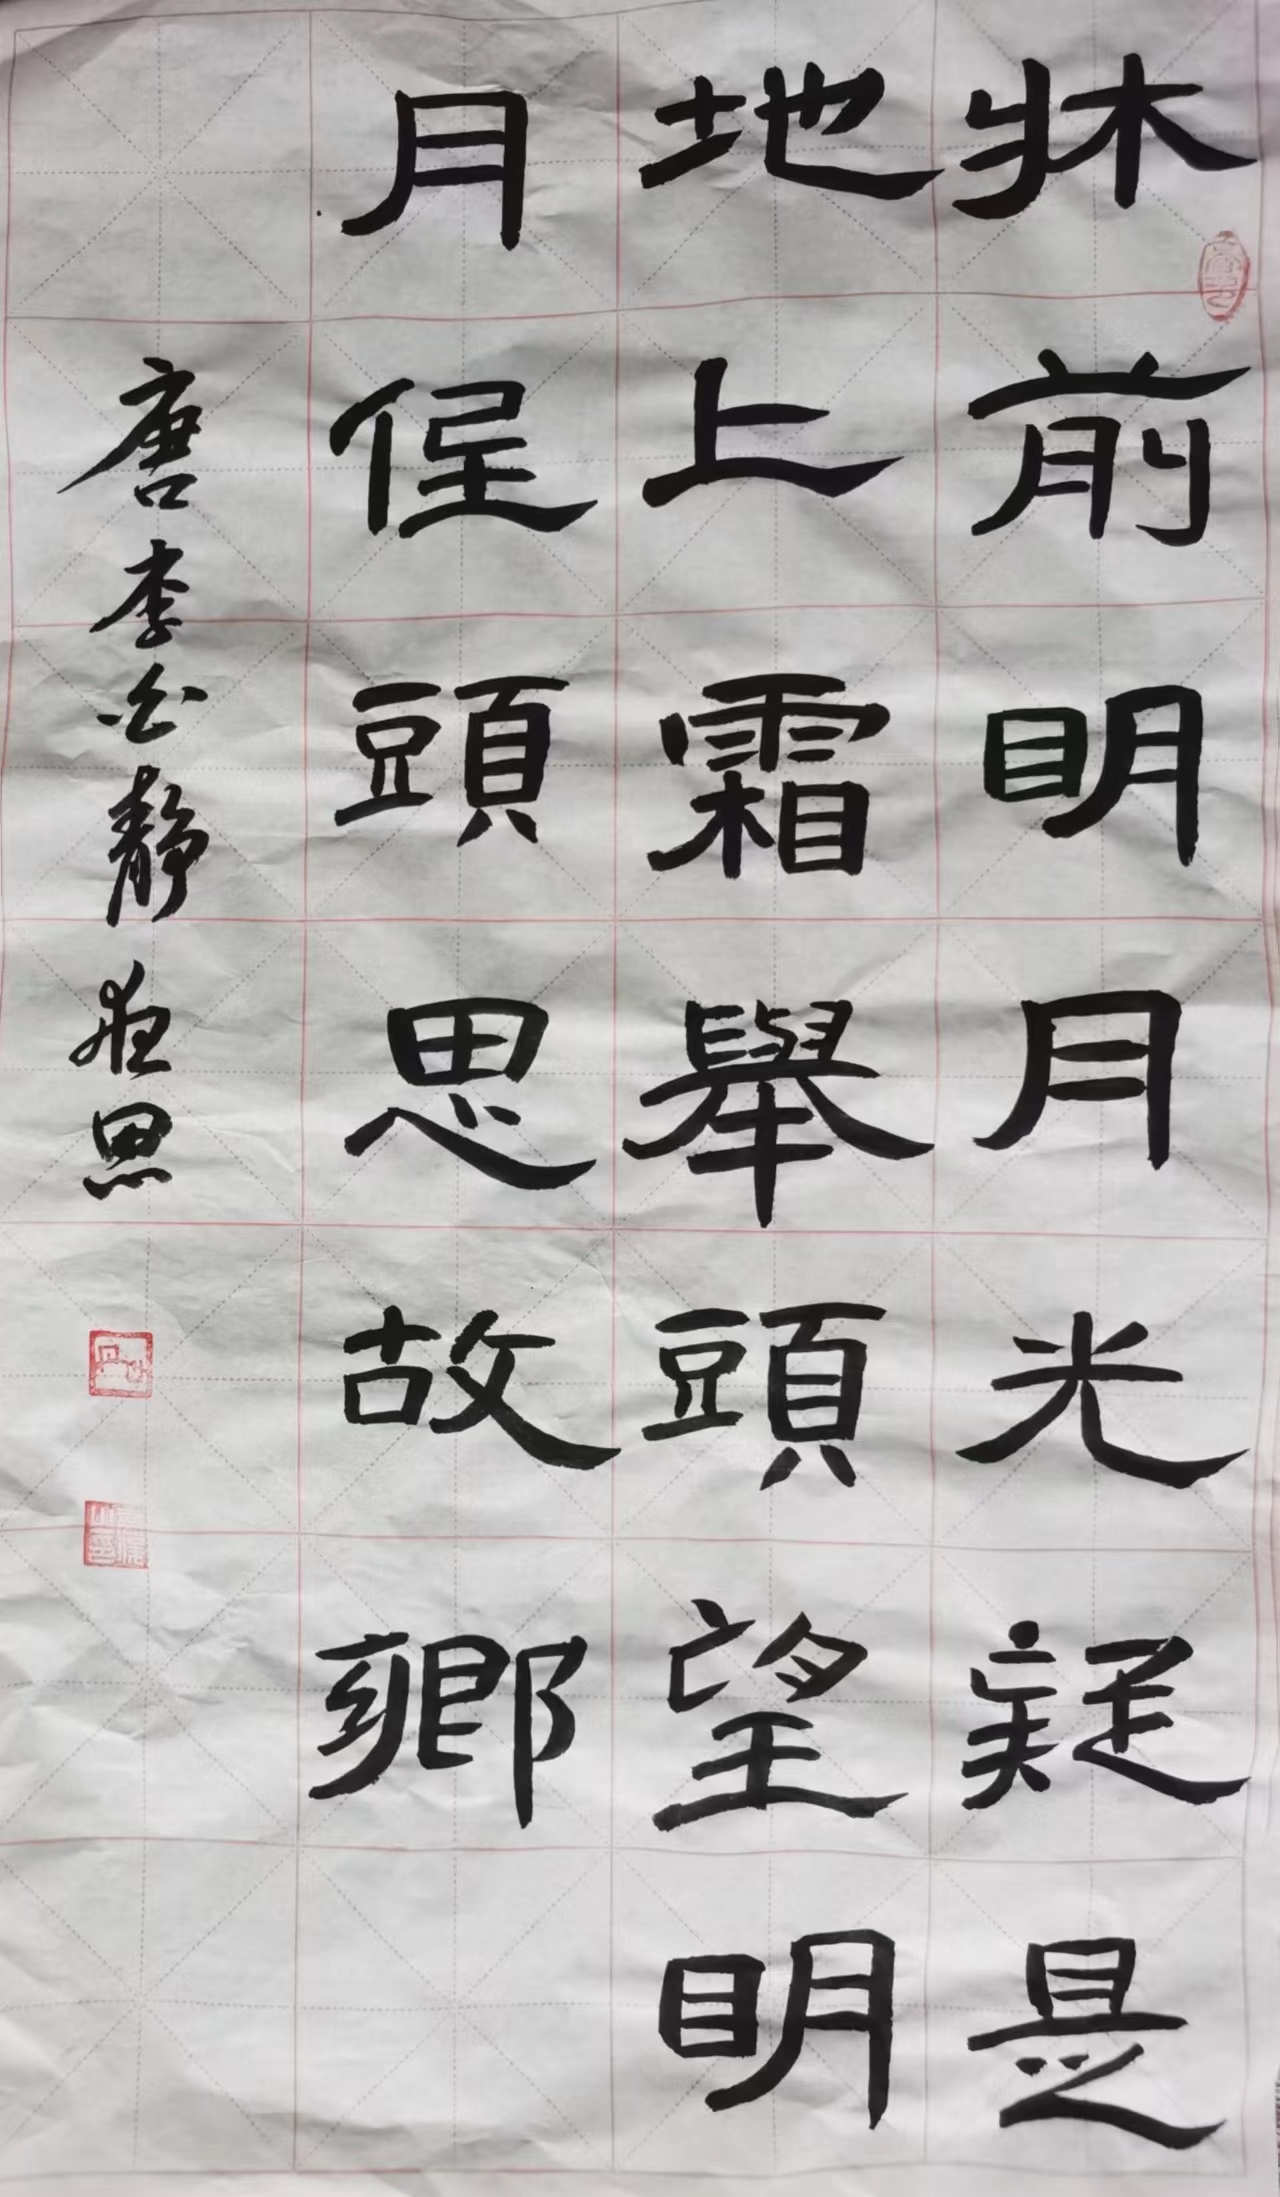 牀前明月光疑是
地上霜舉頭望明
月低頭思故鄉
唐李白靜夜思